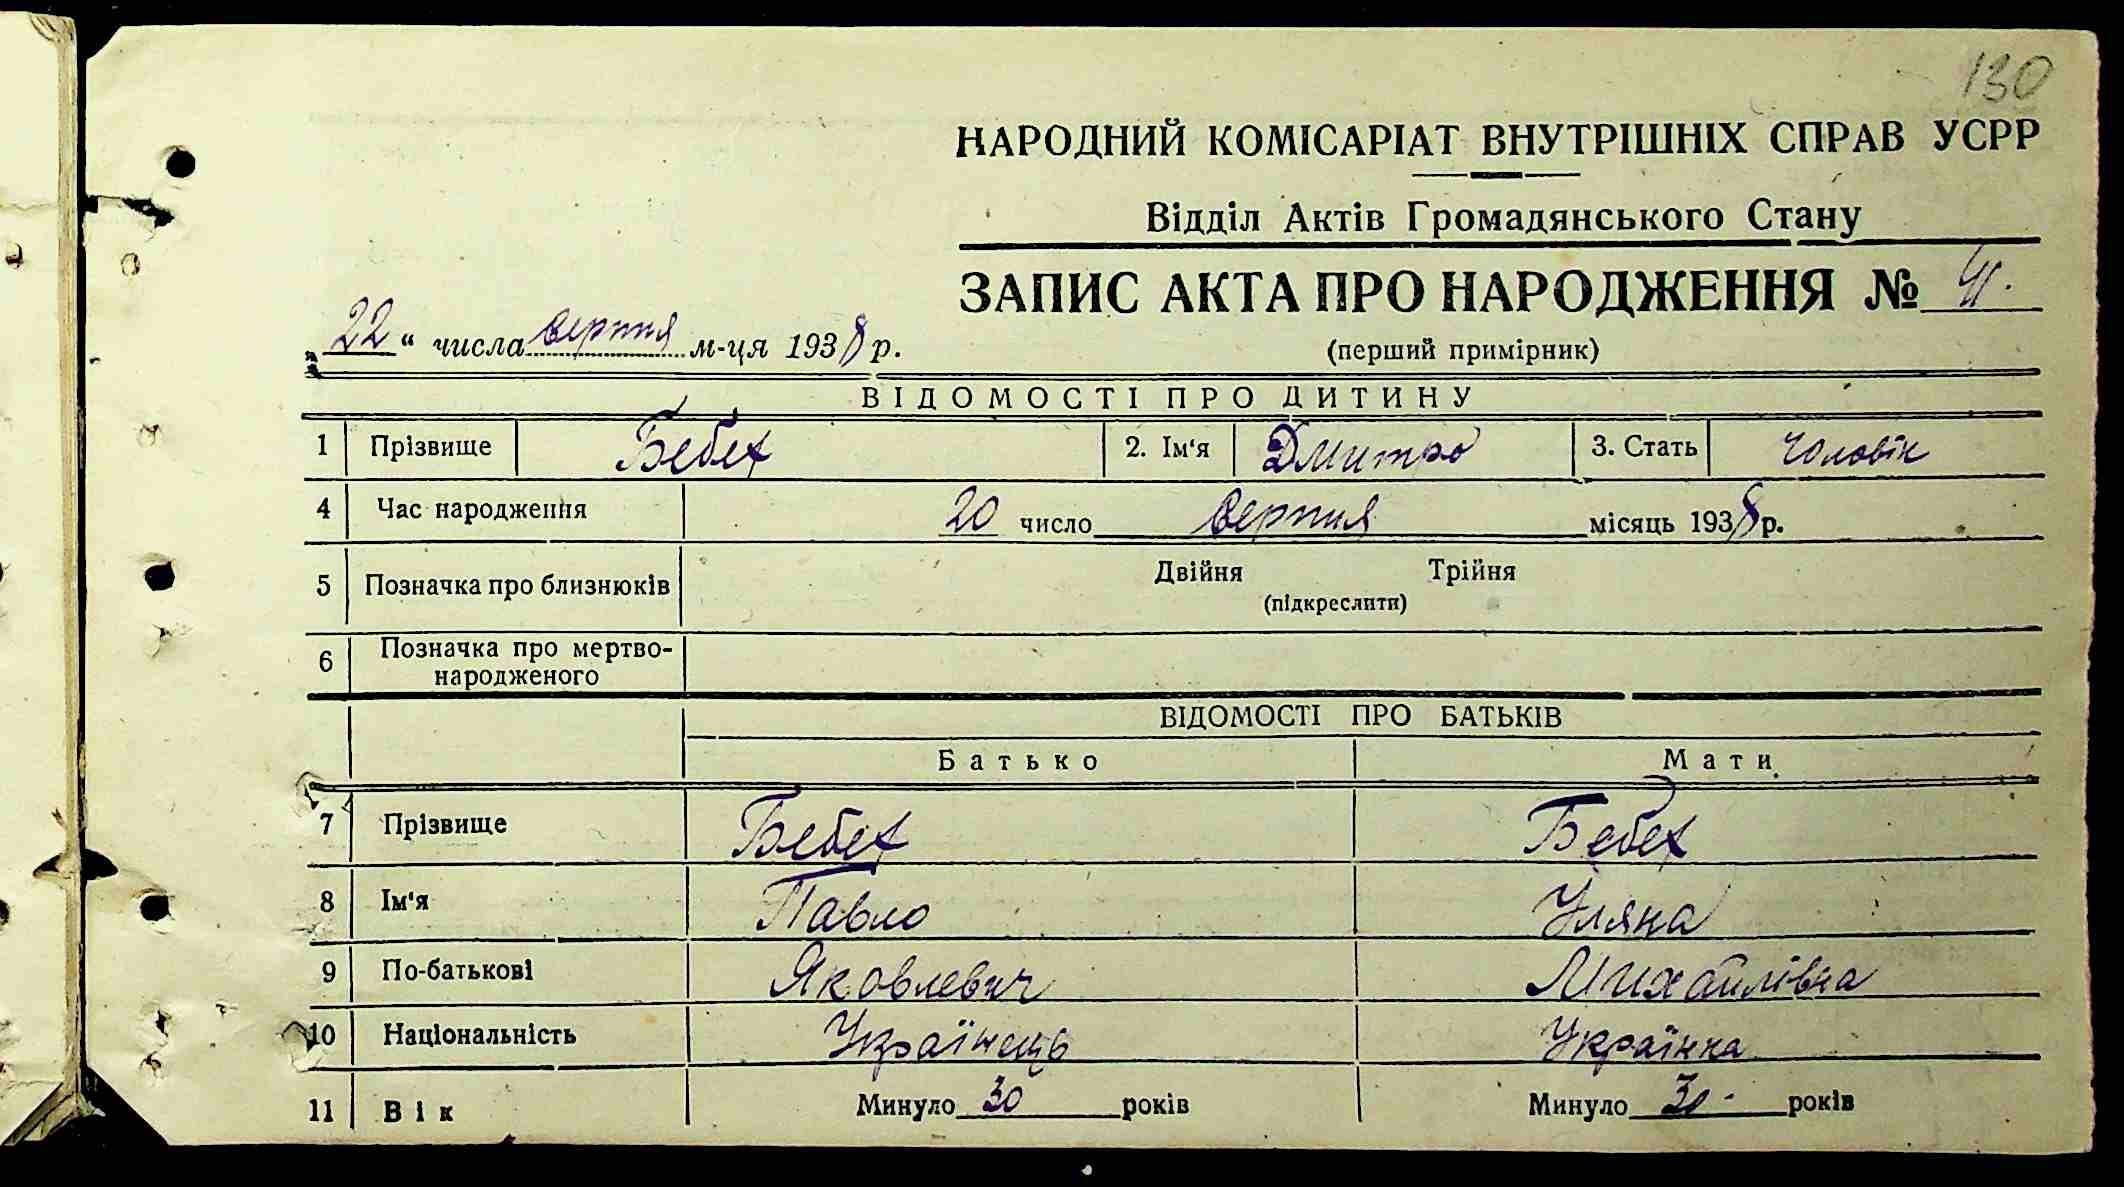 130
НАРОДНИЙ КОМІСАРІАТ ВНУТРІШНІХ СПРАВ УСРР
Відділ Актів Громадянського Стану
ЗАПИС АКТА ПРО НАРОДЖЕННЯ №
„22“ числа серпня м-ця 1938 р.
(перший примірник)
ВІДОМОСТІ ПРО ДИТИНУ
1 Прізвище Бебех 2. Ім'я Дмитро 3. Стать чоловік
4 Час народження 20 число серпня місяць 1938 р.
5 Позначка про близнюків Двійня Трійня
(підкреслити)
6 Позначка про мертво-
народженого
ВІДОМОСТІ ПРО БАТЬКІВ
Батько Мати
7 Прізвище Бебех Бебех
8 Ім'я Павло Уляна
9 По-батькові Яковлевич Михайлівна
10 Національність Українець Українка
11 Вік Минуло 30 років Минуло 30 років